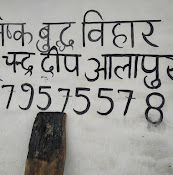 ष्क बुद्ध विहार
चन्द्र द्वीप आलापुर
79575578